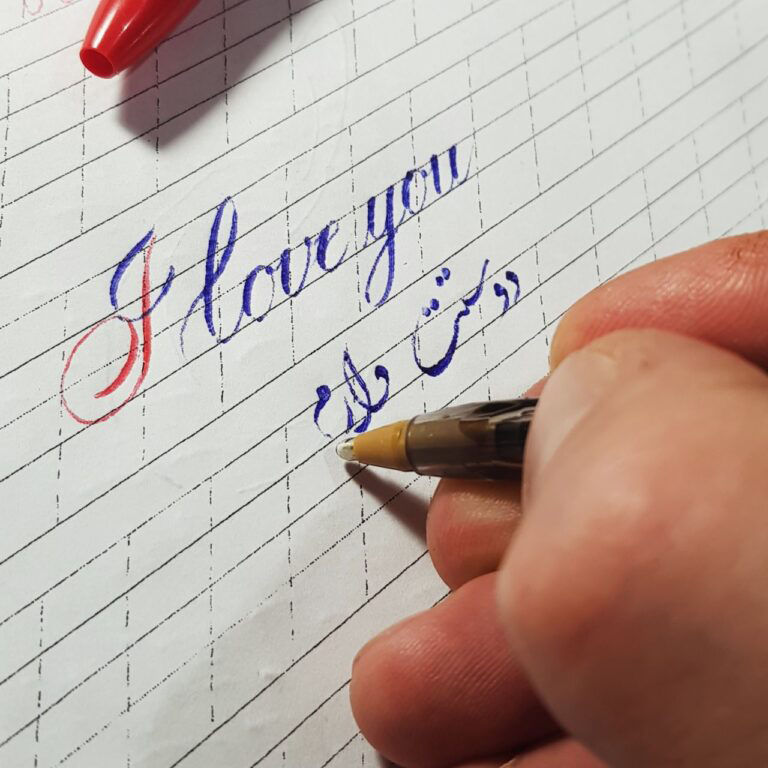 I love you
دوستت دارم